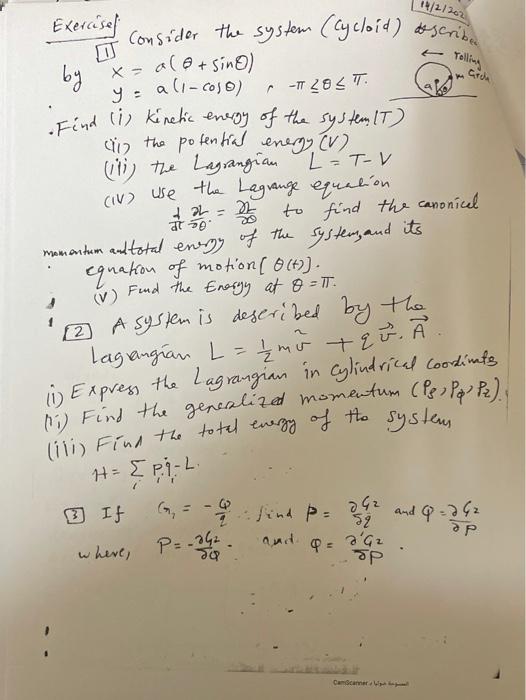 Exercise
14/2/202
1 Consider the system (cycloid) described
by x = a(θ + sinθ)
y = a(1-cosθ) , -π ≤ θ ≤ π.
← rolling
m circle
a θ
. Find (i) Kinetic energy of the system (T)
(ii) the potential energy (V)
(iii) the Lagrangian L = T - V
(iv) Use the Lagrange equation
d/dt ∂L/∂θ̇ = ∂L/∂θ to find the canonical
momentum and total energy of the system, and its
equation of motion [θ(t)].
(v) Find the Energy at θ = π.
2 A system is described by the
Lagrangian L = 1/2 m v² + q v⃗. A⃗.
(i) Express the Lagrangian in cylindrical coordinates
(ii) Find the generalized momentum (Pρ, Pφ, Pz).
(iii) Find the total energy of the system
H = Σ Pᵢq̇ᵢ - L.
i
3 If G₁ = - Q/q . find P = ∂G₂/∂q and Q = ∂G₂/∂P
where, P = -∂G₂/∂Q . and. Q = ∂G₂/∂P .
CamScanner